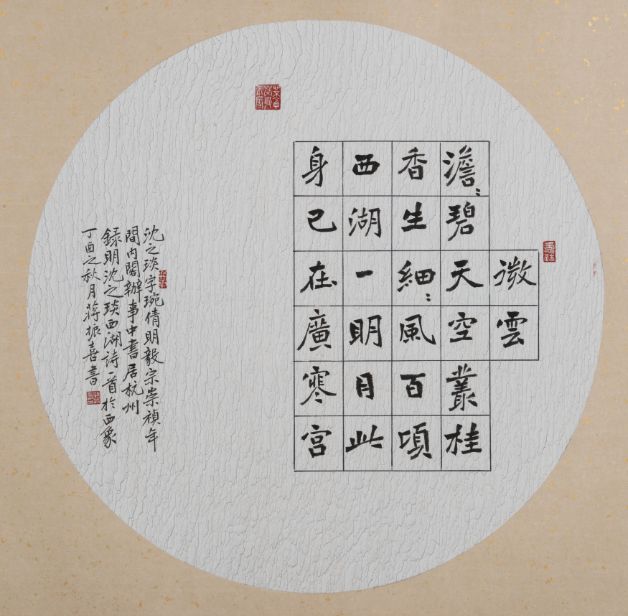 微雲
澹〻碧天空叢桂
香生細〻風百頃
西湖一明月此
身已在廣寒宮
沈之琰字琬倩明毅宗崇禎年
間内閣辦事中書居杭州
録明沈之琰西湖詩一首於西象
丁酉之秋月蔣振喜書